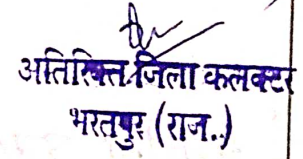 अतिरिक्त जिला कलक्टर
भरतपुर (राज..)